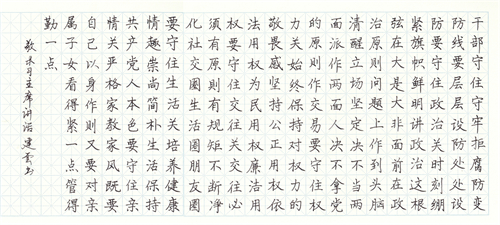 干部守住守牢拒腐防变
防线要层层设防处处设
防要守住政治关时刻绷
紧旗帜鲜明讲政治这根
弦在大是大非面前在政
治原则问题上作到头脑
清醒立场坚定决不当两
面派作两面人决不拿党
的原则作交易要守住权
力关始终保持对权力的
敬畏感坚持公正用权依
法用权为民用权廉洁用
权要守住交往关交往必
须有原则有规矩不断净
化社交圈生活圈朋友圈
要守住生活关培养健康
情趣崇尚简朴生活保持
共产党人本色要守住亲
情关严格家教家风既要
自己以身作则又要对亲
属子女看得紧一点管得
勤一点
敬录习主席讲话建书